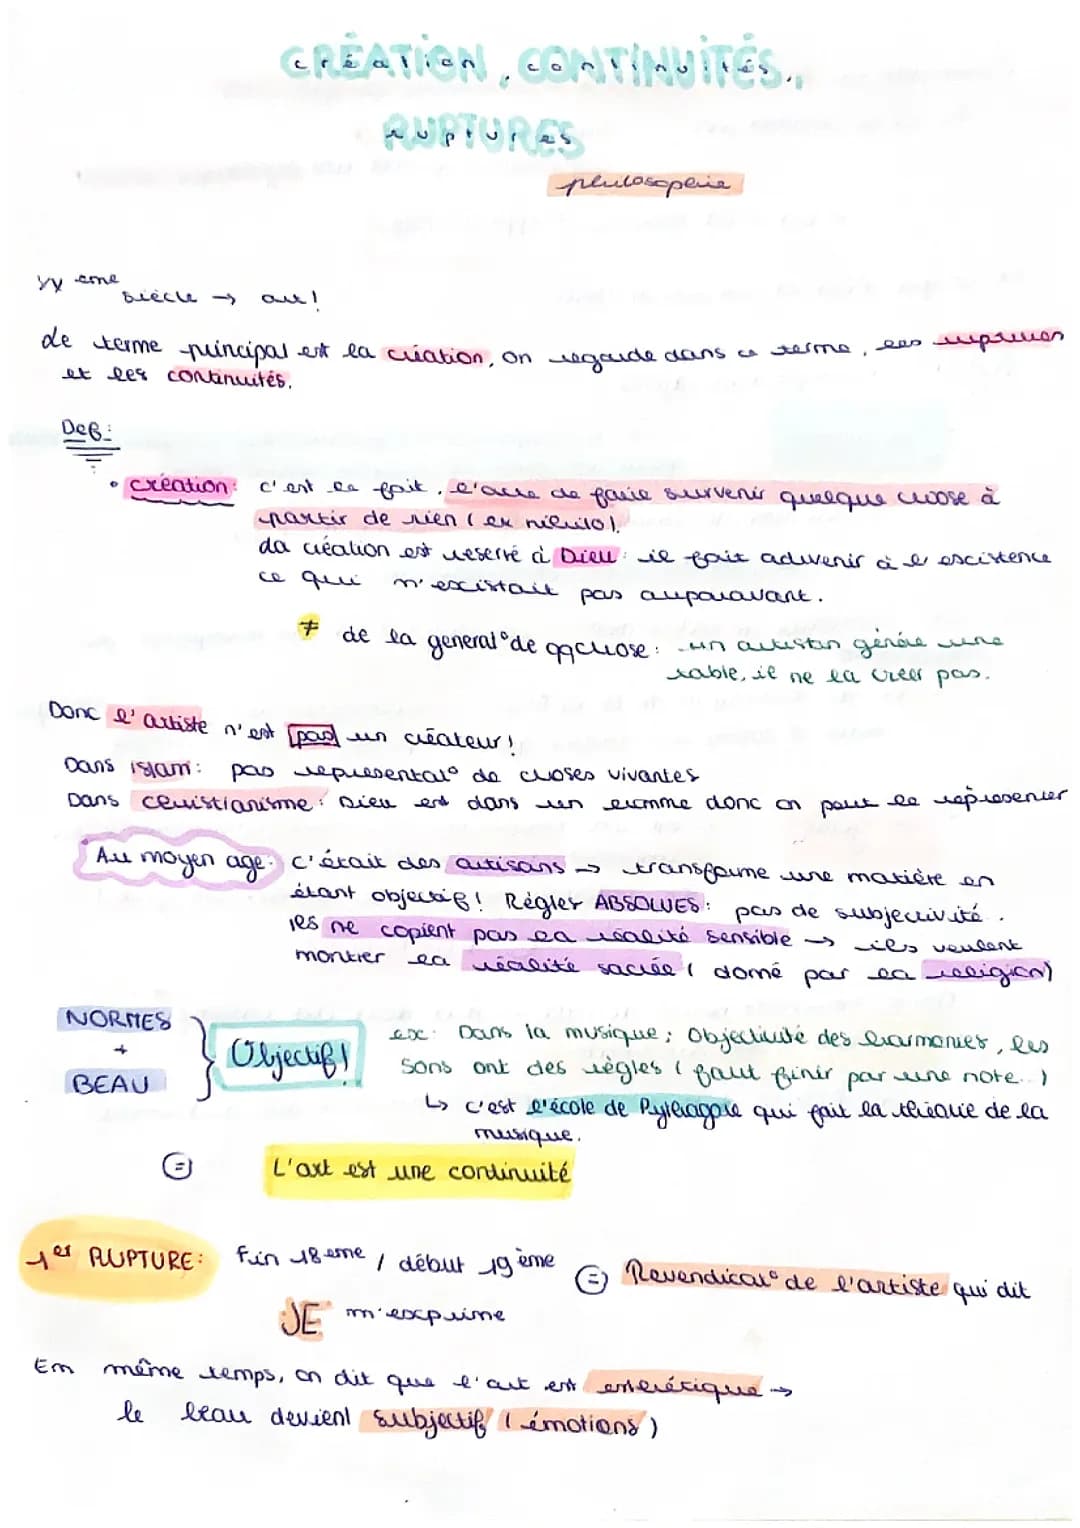 CRÉATION, CONTINUITÉS,
RUPTURES
philosophie
XX eme siècle → art!
Le terme principal est la création, on regarde dans ce terme, les ruptures
et les continuités.
Def:
• création: c'est le fait, l'acte de faire survenir quelque chose à
partir de rien (ex nihilo).
La création est réservé à Dieu: il fait advenir à l'existence
ce qui n'existait pas auparavant.
≠ de la general° de qqchose: un artisan génére une
table, il ne la créer pas.
Donc l'artiste n'est pas un créateur!
Dans islam: pas représentat° de choses vivantes
Dans christianisme: Dieu est dans un homme donc on peut le représenter
Au moyen age: c'était des artisans → transforme une matière en
étant objectif! Règles ABSOLUES: pas de subjectivité.
Ils ne copient pas la réalité sensible → ils veulent
montrer la réalité sacrée (donné par la religion)
NORMES
+
BEAU
Objectif!
ex: Dans la musique; Objectivité des harmonies, les
sons ont des règles (faut finir par une note..)
↳ c'est l'école de Pythagore qui fait la théorie de la
musique.
= L'art est une continuité
1er RUPTURE: Fin 18eme / début 19ème = Revendicat° de l'artiste qui dit
JE m'exprime
En même temps, on dit que l'art est esthétique →
le beau devient subjectif (émotions)